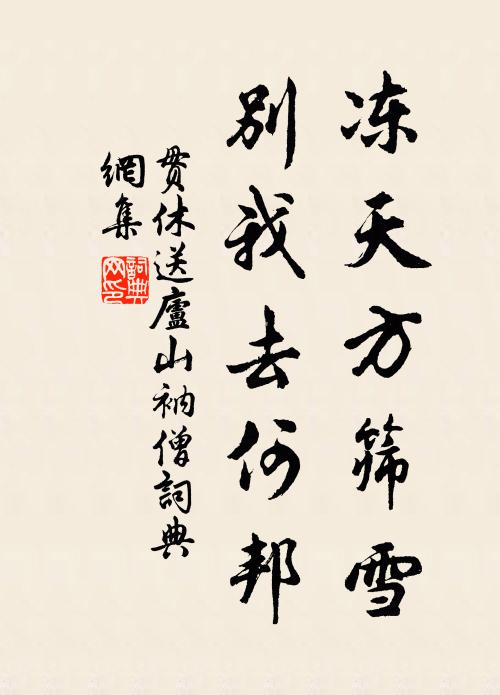 冻天方筛雪
别我去何邦
贯休送廬山衲僧詞典
網集
詞典網印